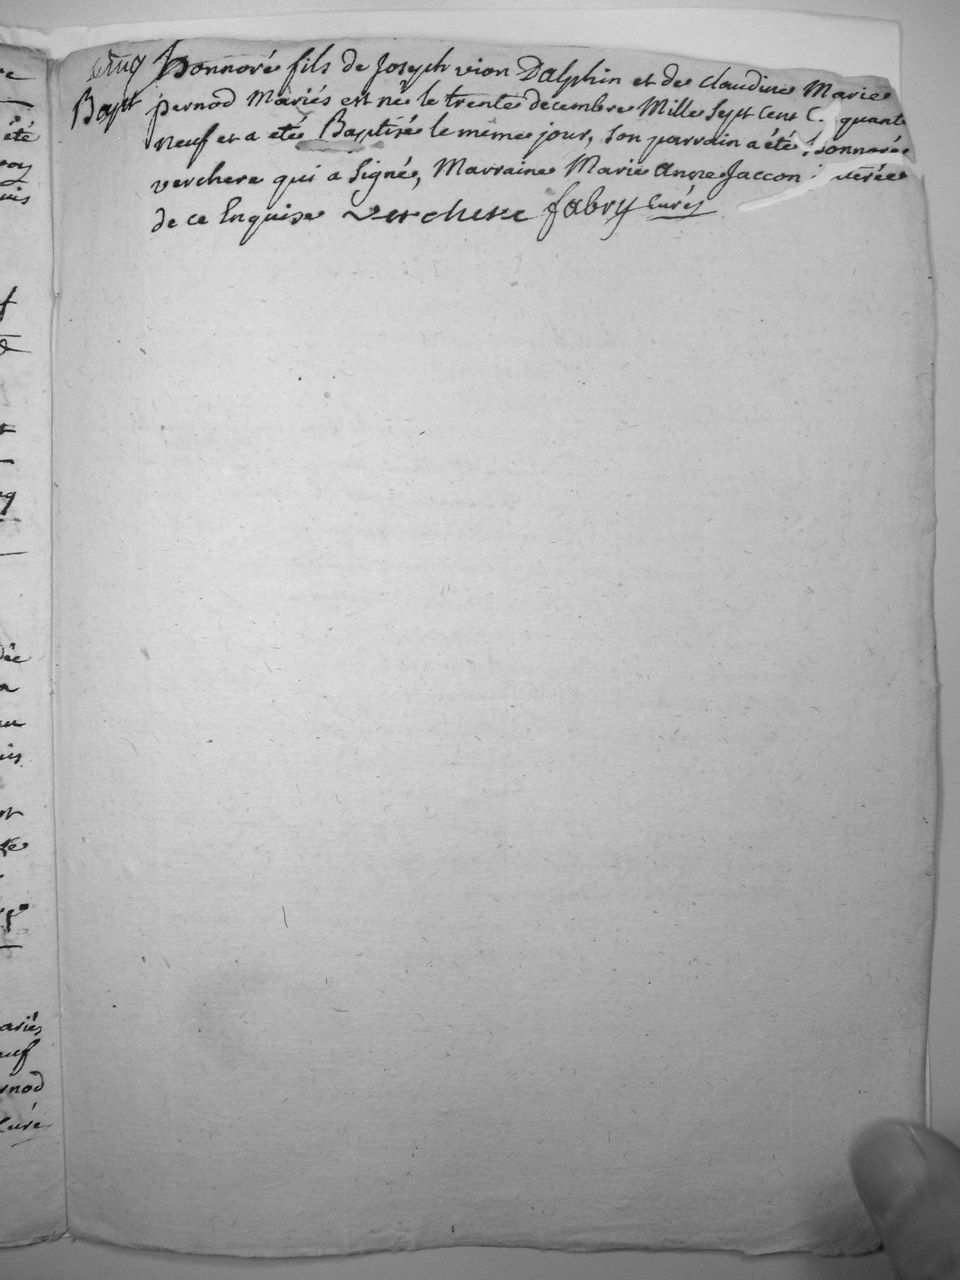 Bapt
honnoré fils de Joseph vion Dalphin et de claudine Marie
pernod Mariés est né le trente decembre Mille Sept Cent C. quante
neuf et a été Baptisé le meme jour, Son parrain a été honnoré
verchere qui a Signé, Marraine Marie Anne Jaccon
de ce Enquise verchere fabry Curé
été
ariés
euf
rnod
Curé